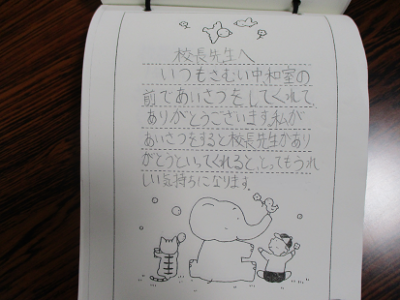 校長先生へ
いつもさむい中和室の
前であいさつをしてくれて、
ありがとうございます。私が
あいさつをすると校長先生があり
がとうといってくれると、とってもうれ
しい気持ちになります。